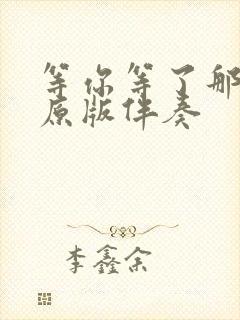 等你等了那
原版伴奏
李鑫余